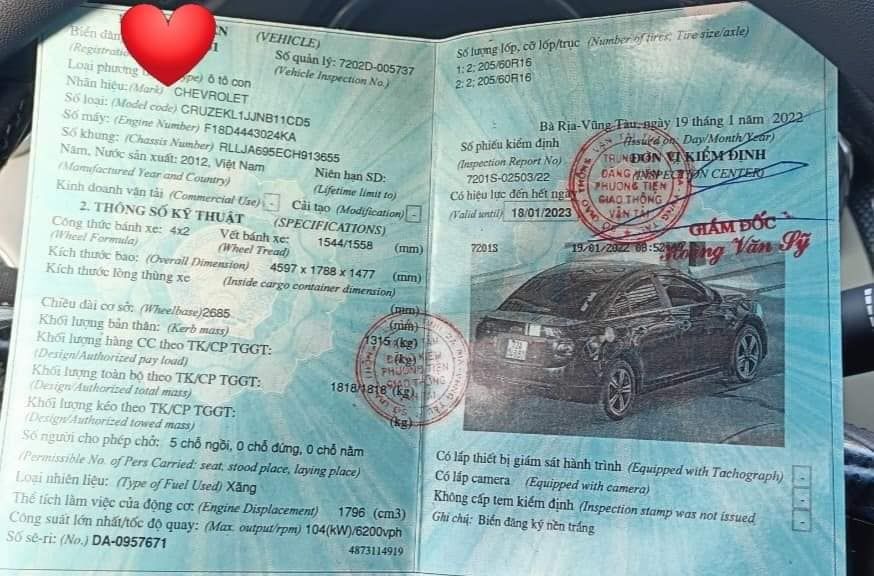 (VEHICLE)
Biển đăn
(Registrati
Số quản lý: 7202D-005737
(Vehicle Inspection No.)
Loại phương ype) ô tô con
Nhãn hiệu: (Mark) CHEVROLET
Số loại: (Model code) CRUZEKL1JJNB11CD5
Số máy: (Engine Number) F18D4443024KA
Số khung: (Chassis Number) RLLJA695ECH913655
Năm, Nước sản xuất: 2012, Việt Nam
(Manufactured Year and Country)
Niên hạn SD:
(Lifetime limit to)
Kinh doanh vận tải (Commercial Use) - Cải tạo (Modification) -
2. THÔNG SỐ KỸ THUẬT (SPECIFICATIONS)
Công thức bánh xe: 4x2
(Wheel Formula)
Vết bánh xe: 1544/1558 (mm)
(Wheel Tread)
Kích thước bao: (Overall Dimension) 4597 x 1788 x 1477 (mm)
Kích thước lòng thùng xe (Inside cargo container dimension)
(mm)
Chiều dài cơ sở: (Wheelbase) 2685 (mm)
Khối lượng bản thân: (Kerb mass) 1315 (kg)
Khối lượng hàng CC theo TK/CP TGGT: (kg)
(Design/Authorized pay load)
Khối lượng toàn bộ theo TK/CP TGGT: 1818/1818 (kg)
(Design/Authorized total mass)
Khối lượng kéo theo TK/CP TGGT: (kg)
(Design/Authorized towed mass)
Số người cho phép chở: 5 chỗ ngồi, 0 chỗ đứng, 0 chỗ nằm
(Permissible No. of Pers Carried: seat, stood place, laying place)
Loại nhiên liệu: (Type of Fuel Used) Xăng
Thể tích làm việc của động cơ: (Engine Displacement) 1796 (cm3)
Công suất lớn nhất/tốc độ quay: (Max. output/rpm) 104(kW)/6200vph
Số sê-ri: (No.) DA-0957671
4873114919
Số lượng lốp, cỡ lốp/trục (Number of tires; Tire size/axle)
1: 2; 205/60R16
2: 2; 205/60R16
Bà Rịa-Vũng Tàu, ngày 19 tháng 1 năm 2022
(Issued on: Day/Month/Year)
Số phiếu kiểm định
(Inspection Report No)
7201S-02503/22
ĐƠN VỊ KIỂM ĐỊNH
(INSPECTION CENTER)
Có hiệu lực đến hết ngày
(Valid until) 18/01/2023
TRUNG
ĐĂNG KIỂM
PHƯƠNG TIỆN
GIAO THÔNG
VẬN TẢI
GIÁM ĐỐC
Hoàng Văn Sỹ
7201S
19/01/2022 08:52
PHƯƠNG TIỆN
GIAO THÔNG
Có lắp thiết bị giám sát hành trình (Equipped with Tachograph) -
Có lắp camera (Equipped with camera) -
Không cấp tem kiểm định (Inspection stamp was not issued -
Ghi chú: Biển đăng ký nền trắng